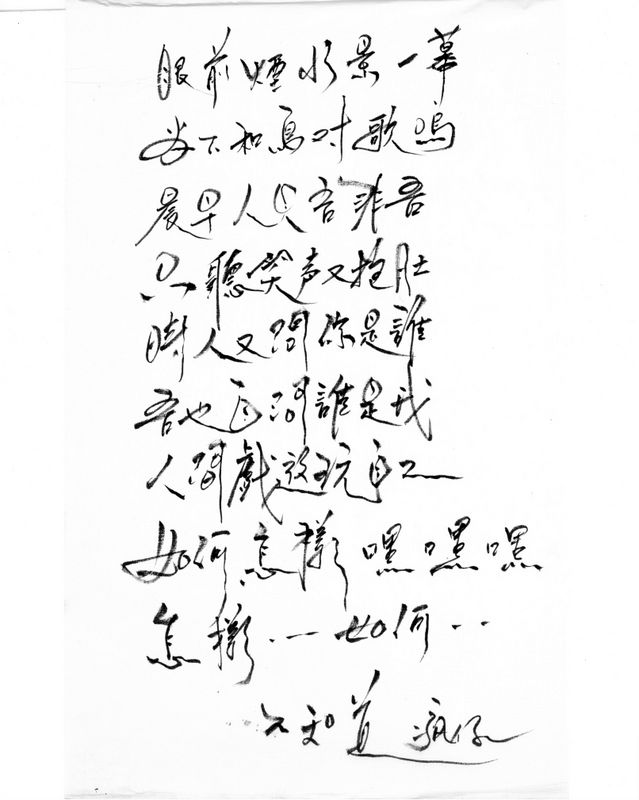 眼前煙水景一幕
下和鳥對歌鳴
晨早人吾非吾
只聽笑声又抱肚
時人又問你是誰
吾也自問誰是我
人間戲遊玩自己
如何怎樣嘿嘿嘿
怎樣‥一如何‥
不知道 瘋仔